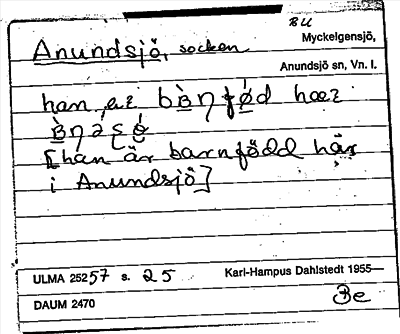 BU
Anundsjö, socken
Myckelgensjö,
Anundsjö sn, Vn. l.
han æɩ bànfǿd hæɩ
[han är barnfödd här
i Anundsjö]
ULMA 25257 s. 25
Karl-Hampus Dahlstedt 1955—
DAUM 2470
Be